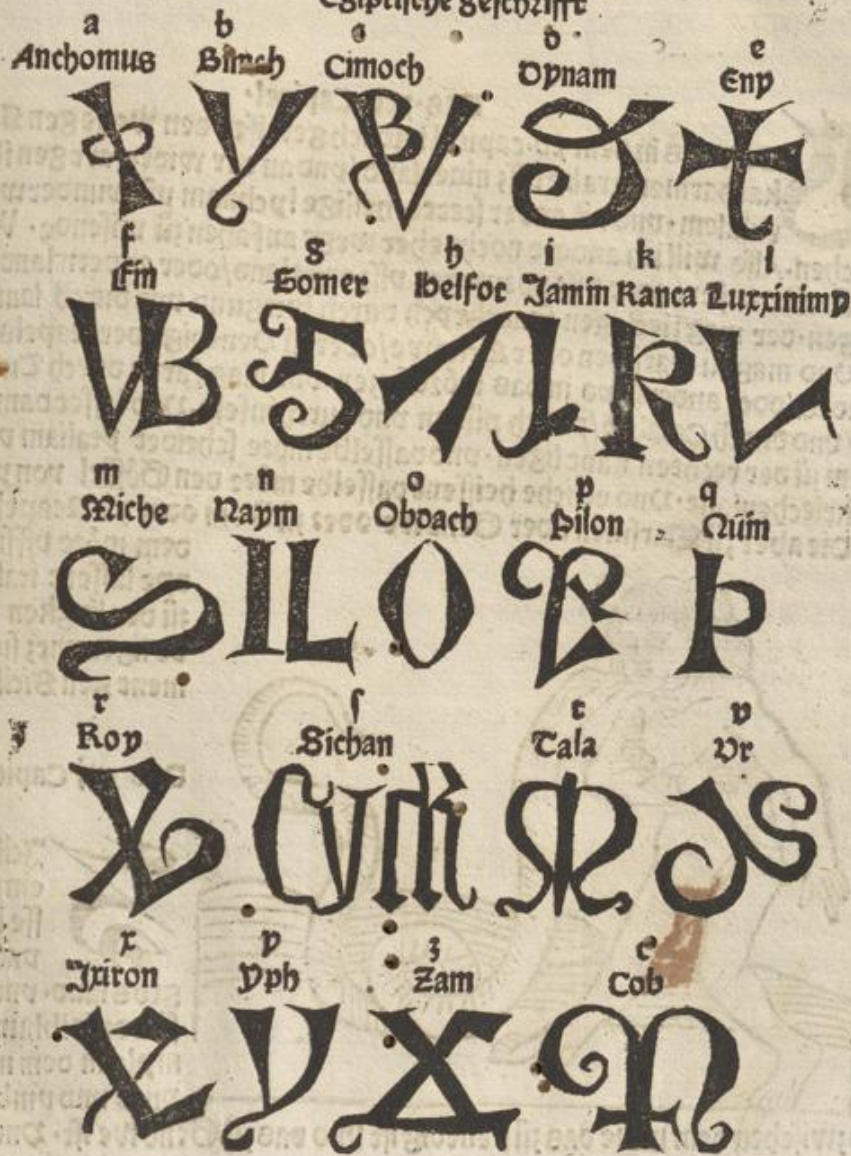 Egiptische geschrifft
a b c d e
Anchomus Cimoch Dynam Eny
f g h i k l
Fin Gomer Helfor Jamin Kanca Luxxinimy
m n o p q
Miche Naym Oboach Pilon Nŭin
r ſ t v
Roy Sichan Tala Vr
x y z c
Ixiron Yph Zam Cob